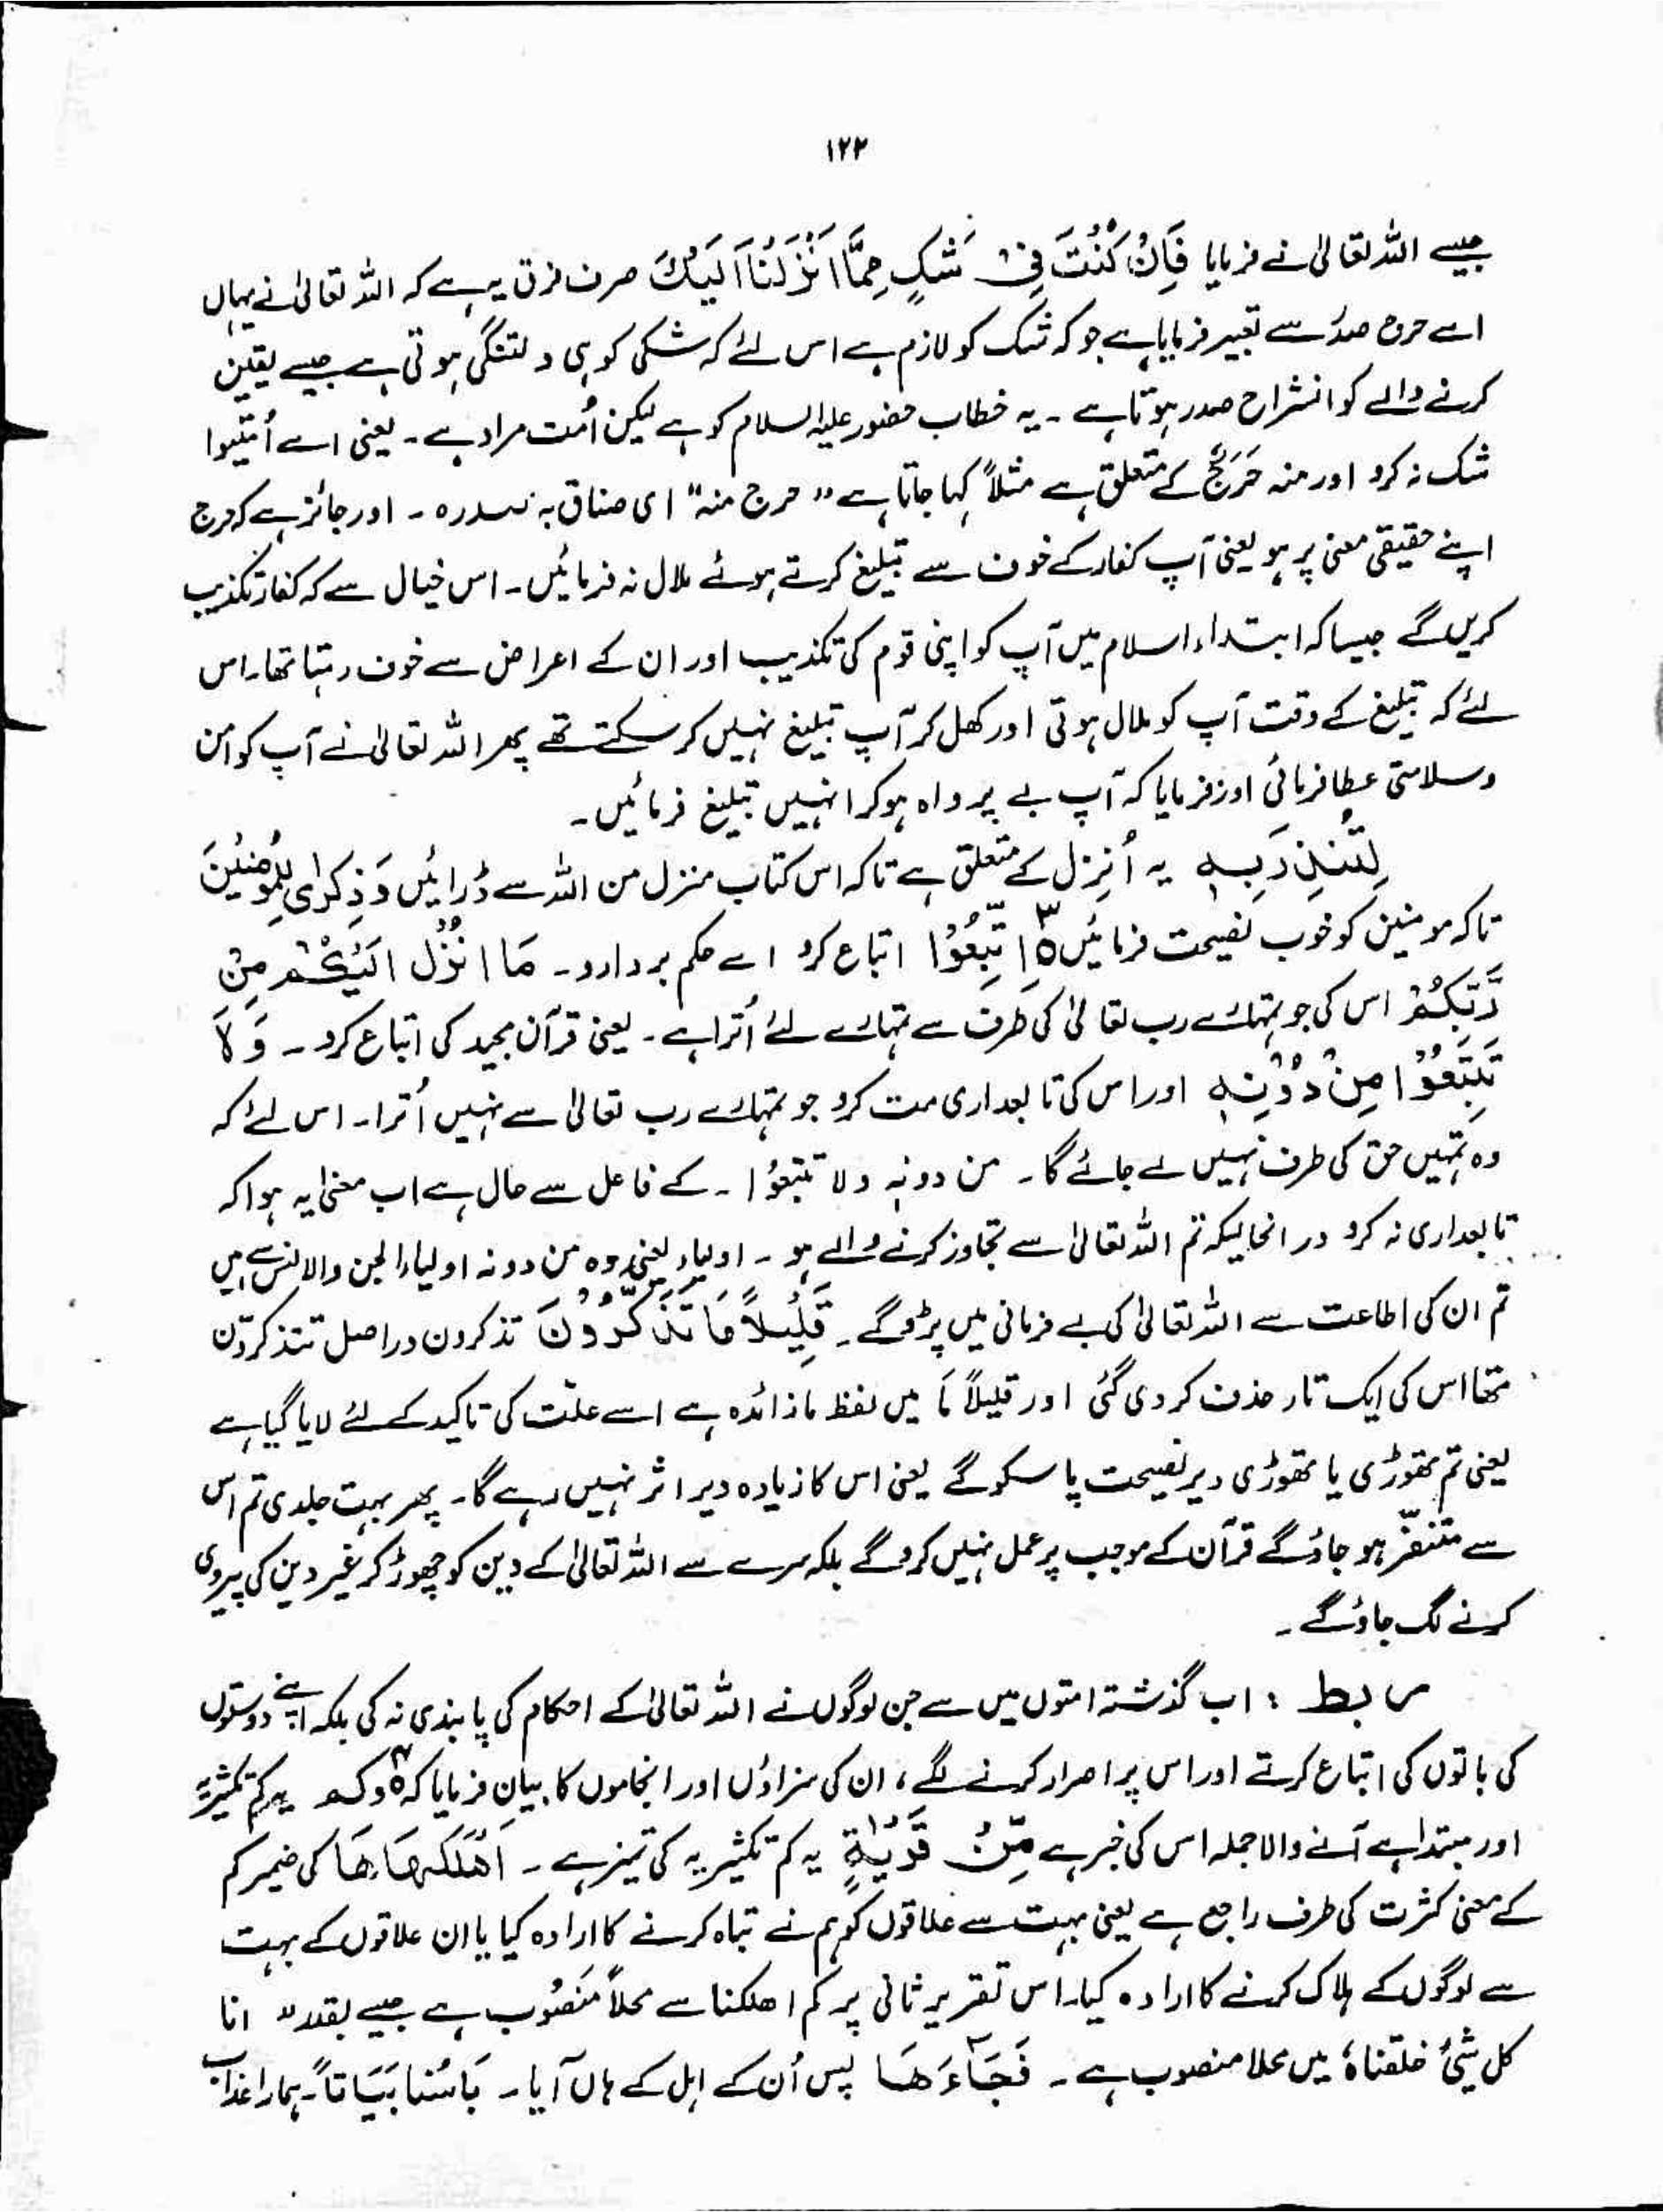 ۱۲۲
جیسے اللہ تعالیٰ نے فرمایا فَاِنْ كُنْتَ فِیْ شَكٍ مِمَّا اَنْزَلْنَا اِلَیْكَ صرف فرق یہ ہے کہ اللہ تعالیٰ نے یہاں
اسے حرج صدر سے تعبیر فرمایا ہے جو کہ شک کو لازم ہے اس لئے کہ شکی کو ہی دلتنگی ہوتی ہے جیسے یقین
کرنے والے کو انشراح صدر ہوتا ہے ۔ یہ خطاب حضور علیہ السلام کو ہے لیکن اُمت مراد ہے ۔ یعنی اے اُمتیوا
شک نہ کرو اور منہ حَرَجٌ کے متعلق ہے مثلاً کہا جاتا ہے " حرج منہ " ای ضاق بہ صدرہ ۔ اور جائز ہے کہ حرج
اپنے حقیقی معنی پر ہو یعنی آپ کفار کے خوف سے تبلیغ کرتے ہوئے ملال نہ فرمائیں ۔ اس خیال سے کہ کفار تکذیب
کریں گے جیسا کہ ابتداء اسلام میں آپ کو اپنی قوم کی تکذیب اور ان کے اعراض سے خوف رہتا تھا۔ اس
لئے کہ تبلیغ کے وقت آپ کو ملال ہوتی اور کھل کر آپ تبلیغ نہیں کر سکتے تھے پھر اللہ تعالیٰ نے آپ کو امن
وسلامتی عطا فرمائی اور فرمایا کہ آپ بے پرواہ ہو کر انہیں تبلیغ فرمائیں ۔
لِتُنْذِرَ بِهٖ یہ اُنْزِل کے متعلق ہے تاکہ اس کتاب منزل من اللہ سے ڈرائیں وَذِكْرٰی لِلْمُؤْمِنِیْنَ
تاکہ مومنین کو خوب نصیحت فرمائیں ۳ اِتَّبِعُوْا اتباع کرو اے حکم بردارو۔ مَا اُنْزِلَ اِلَیْكُمْ مِنْ
رَّبِّكُمْ اس کی جو تمہارے رب تعالیٰ کی طرف سے تمہارے لئے اُترا ہے ۔ یعنی قرآن مجید کی اتباع کرو ۔ وَ لَا
تَتَّبِعُوْا مِنْ دُوْنِهٖ اور اس کی تابعداری مت کرو جو تمہارے رب تعالیٰ سے نہیں اُترا۔ اس لئے کہ
وہ تمہیں حق کی طرف نہیں لے جائے گا ۔ من دونہٖ ولا تتبعُوا ۔ کے فاعل سے حال ہے اب معنیٰ یہ ہوا کہ
تابعداری نہ کرو درانحالیکہ تم اللہ تعالیٰ سے تجاوز کرنے والے ہو ۔ اولیاء یعنی وہ من دونہ اولیاء الجن والانس ہیں
تم ان کی اطاعت سے اللہ تعالیٰ کی بے فرمانی میں پڑو گے ۔ قَلِیْلًا مَا تَذَكَّرُوْنَ تذکرون دراصل تتذکرون
تھا اس کی ایک تار حذف کر دی گئی اور قلیلاً مَا میں لفظ ما زائدہ ہے اسے علّت کی تاکید کے لئے لایا گیا ہے
یعنی تم تھوڑی یا تھوڑی دیر نصیحت پا سکو گے یعنی اس کا زیادہ دیر اثر نہیں رہے گا ۔ پھر بہت جلدی تم اس
سے متنفّر ہو جاؤ گے قرآن کے موجب پر عمل نہیں کرو گے بلکہ سرے سے اللہ تعالیٰ کے دین کو چھوڑ کر غیر دین کی پیروی
کرنے لگ جاؤ گے ۔
ربط : اب گذشتہ امتوں میں سے جن لوگوں نے اللہ تعالیٰ کے احکام کی پابندی نہ کی بلکہ اپنے دوستوں
کی باتوں کی اتباع کرتے اور اس پر اصرار کرنے لگے ، ان کی سزاؤں اور انجاموں کا بیان فرمایا کہ ۴ وکم یہ کم تکثیریہ
اور مبتدا ہے آنے والا جملہ اس کی خبر ہے مِّنْ قَرْیَةٍ یہ کم تکثیریہ کی تمیز ہے ۔ اَهْلَكْهَا ھَا کی ضمیر کم
کے معنی کثرت کی طرف راجع ہے یعنی بہت سے علاقوں کو ہم نے تباہ کرنے کا ارادہ کیا یا ان علاقوں کے بہت
سے لوگوں کے ہلاک کرنے کا ارادہ کیا۔ اس تقریر ثانی پر کم اھلکنا سے محلاً منصُوب ہے جیسے بقدر " انا
کل شئ خلقناہُ میں محلا منصوب ہے ۔ فَجَآءَهَا پس اُن کے اہل کے ہاں آیا ۔ بَاسُنا بَیَاتاً۔ ہمارا عذاب